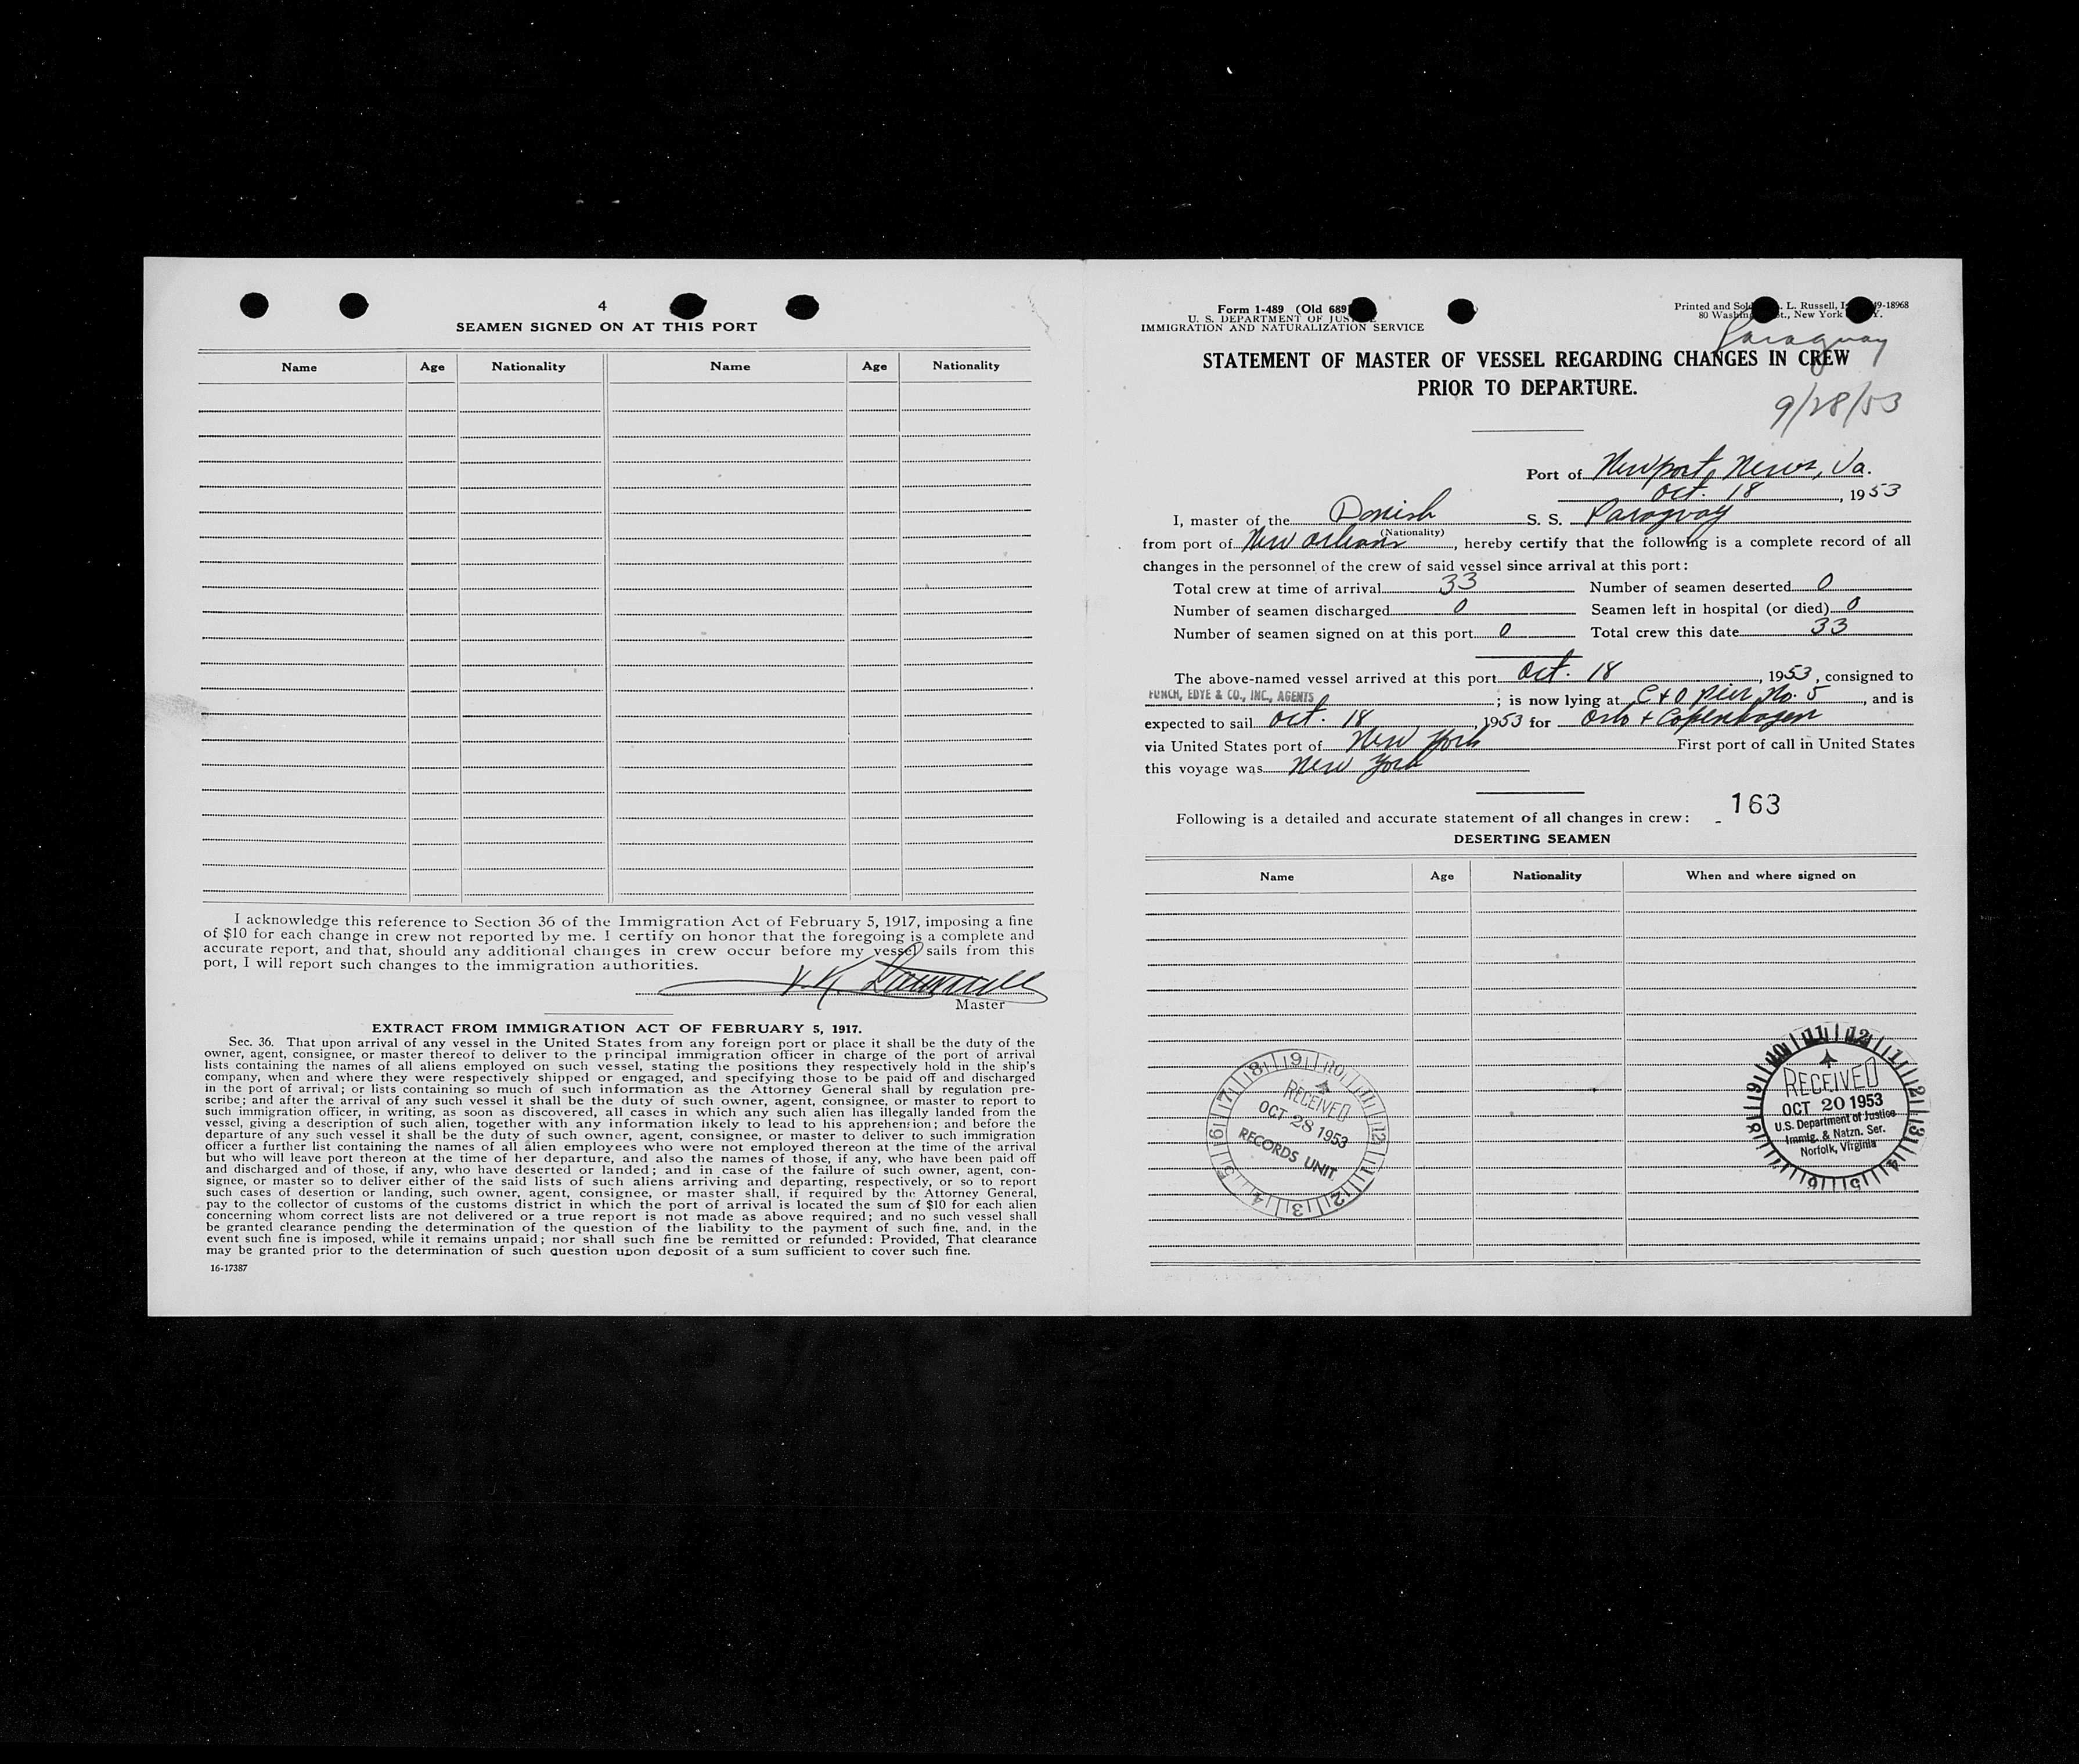 4
SEAMEN SIGNED ON AT THIS PORT
Name Age Nationality Name Age Nationality
I acknowledge this reference to Section 36 of the Immigration Act of February 5, 1917, imposing a fine
of $10 for each change in crew not reported by me. I certify on honor that the foregoing is a complete and
accurate report, and that, should any additional changes in crew occur before my vessel sails from this
port, I will report such changes to the immigration authorities.
Master
EXTRACT FROM IMMIGRATION ACT OF FEBRUARY 5, 1917.
Sec. 36. That upon arrival of any vessel in the United States from any foreign port or place it shall be the duty of the
owner, agent, consignee, or master thereof to deliver to the principal immigration officer in charge of the port of arrival
lists containing the names of all aliens employed on such vessel, stating the positions they respectively hold in the ship's
company, when and where they were respectively shipped or engaged, and specifying those to be paid off and discharged
in the port of arrival; or lists containing so much of such information as the Attorney General shall by regulation pre-
scribe; and after the arrival of any such vessel it shall be the duty of such owner, agent, consignee, or master to report to
such immigration officer, in writing, as soon as discovered, all cases in which any such alien has illegally landed from the
vessel, giving a description of such alien, together with any information likely to lead to his apprehension; and before the
departure of any such vessel it shall be the duty of such owner, agent, consignee, or master to deliver to such immigration
officer a further list containing the names of all alien employees who were not employed thereon at the time of the arrival
but who will leave port thereon at the time of her departure, and also the names of those, if any, who have been paid off
and discharged and of those, if any, who have deserted or landed; and in case of the failure of such owner, agent, con-
signee, or master so to deliver either of the said lists of such aliens arriving and departing, respectively, or so to report
such cases of desertion or landing, such owner, agent, consignee, or master shall, if required by the Attorney General,
pay to the collector of customs of the customs district in which the port of arrival is located the sum of $10 for each alien
concerning whom correct lists are not delivered or a true report is not made as above required; and no such vessel shall
be granted clearance pending the determination of the question of the liability to the payment of such fine, and, in the
event such fine is imposed, while it remains unpaid; nor shall such fine be remitted or refunded: Provided, That clearance
may be granted prior to the determination of such question upon deposit of a sum sufficient to cover such fine.
16-17387
Form 1-489 (Old 689
U. S. DEPARTMENT OF JUSTICE
IMMIGRATION AND NATURALIZATION SERVICE
Printed and Sold L. Russell, 49-18968
80 Washing St., New York Y.
Paraguay
STATEMENT OF MASTER OF VESSEL REGARDING CHANGES IN CREW
PRIOR TO DEPARTURE.
9/28/53
Port of Newport News, Va.
Oct. 18, 1953
I, master of the Danish S. S. Paraguay
(Nationality)
from port of New Orleans, hereby certify that the following is a complete record of all
changes in the personnel of the crew of said vessel since arrival at this port:
Total crew at time of arrival 33 Number of seamen deserted 0
Number of seamen discharged 0 Seamen left in hospital (or died) 0
Number of seamen signed on at this port 0 Total crew this date 33
The above-named vessel arrived at this port Oct. 18, 1953, consigned to
FUNCH, EDYE & CO., INC., AGENTS; is now lying at C & O Pier No. 5, and is
expected to sail Oct. 18, 1953 for Oslo & Copenhagen
via United States port of New York First port of call in United States
this voyage was New York
163
Following is a detailed and accurate statement of all changes in crew:
DESERTING SEAMEN
Name Age Nationality When and where signed on
9 10 11 12 1 2 3 4 5 6 7 8
RECEIVED
OCT 28 1953
RECORDS UNIT
12 1 2 3 4 5 6 7 8 9 10 11
RECEIVED
OCT 20 1953
U.S. Department of Justice
Immig. & Natzn. Ser.
Norfolk, Virginia